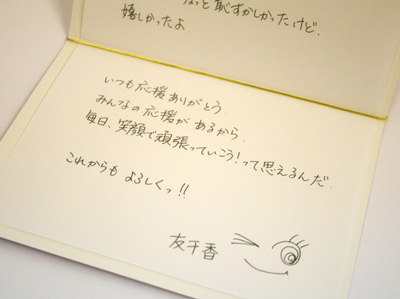 ちょっと恥ずかしかったけど、
嬉しかったよ
いつも応援ありがとう
みんなの応援があるから
毎日、笑顔で頑張っていこう!って思えるんだ
これからもよろしくっ!!
友千香